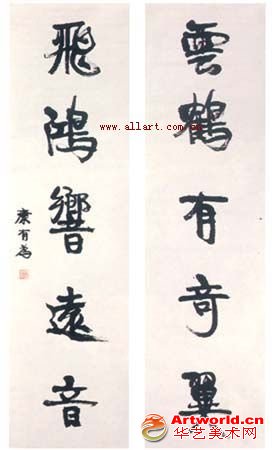 雲鶴有奇翼
飛鴻響遠音
康有為
www.allart.com.cn
Artworld.cn
华艺美术网